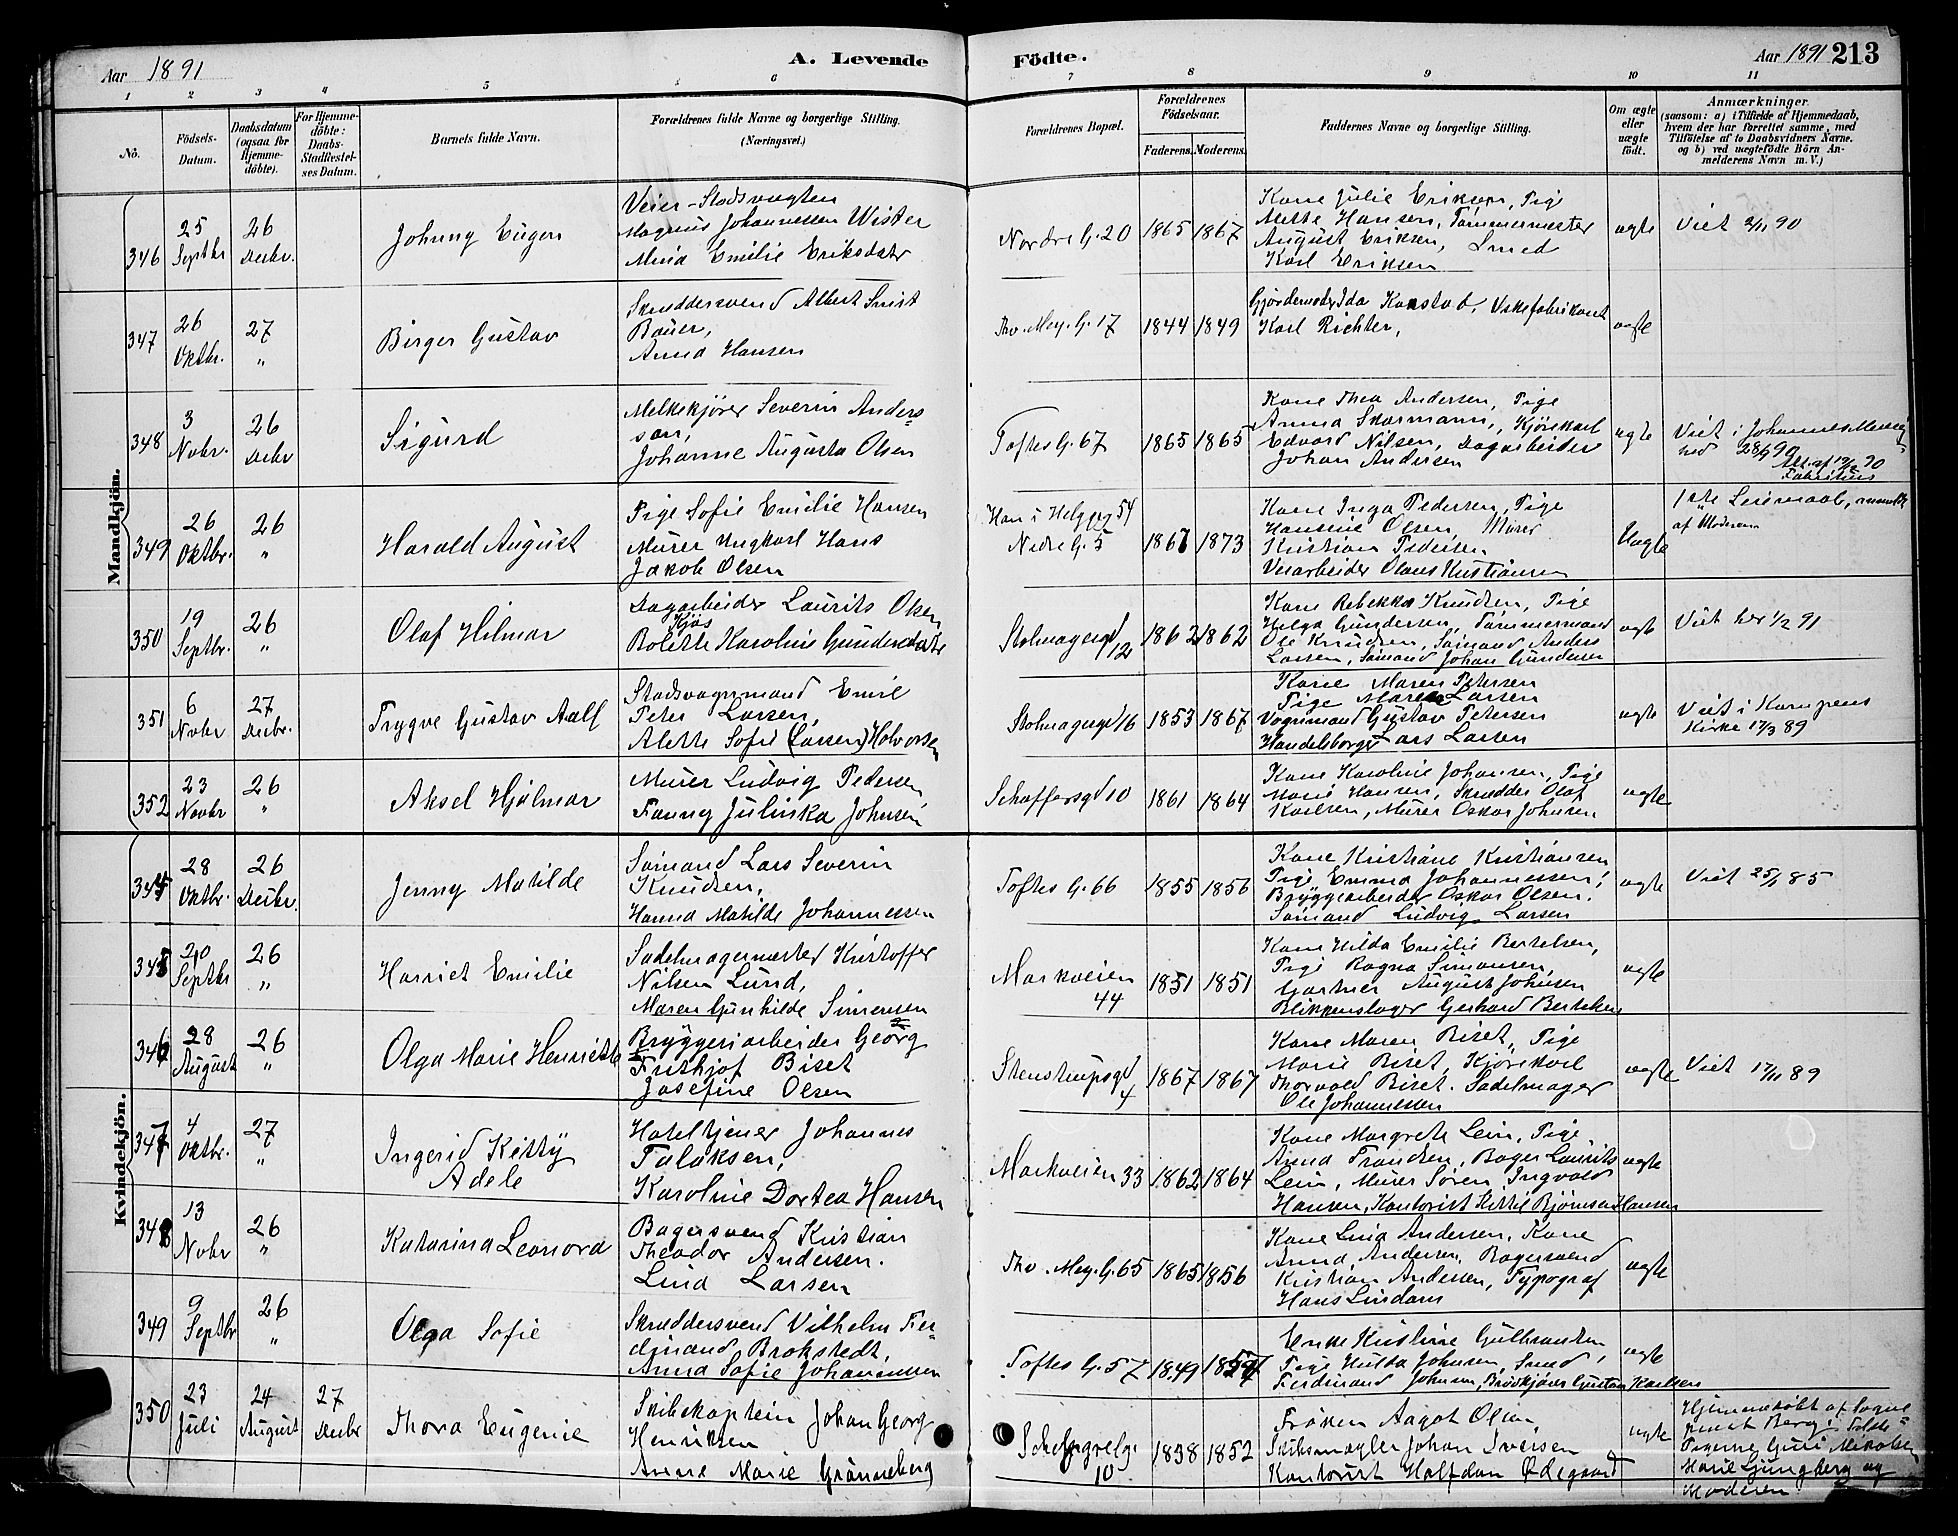 Aar 1891
A. Levende
Födte.
Aar 1891 213
1 2 3 4 5 6 7 8 9 10 11
No.
Födsels-Datum.
Daabsdatum (ogsaa for Hjemme-döbte).
For Hjemme-döbte: Daabs-Stadfæstel-ses Datum.
Barnets fulde Navn.
Forældrenes fulde Navne og borgerlige Stilling. (Næringsvei.)
Forældrenes Bopæl.
Forældrenes Födselsaar.
Faderens. Moderens.
Faddernes Navne og borgerlige Stilling.
Om ægte eller uægte födt.
Anmærkninger.
(saasom: a) i Tilfælde af Hjemmedaab, hvem der har forrettet samme, med Tilföielse af to Daabsvidners Navne. og b) ved uægtefödte Börn An-melderens Navn m. V.)
Mandkjön.
346 25 Septbr 26 Decbr. Johnny Eugen
Veier-Stadsvagten
Magnus Johannessen Wister
Mina Emilie Eriksdatr
Nordre G. 20 1865 1867
Kone Julie Eriksen, Pige
Mette Hansen, Tømmermester
August Eriksen, Smed
Karl Eriksen
ægte
347 26 Oktbr. 27 " Birger Gustav
Skræddersvend Albert
Bauer,
Anna Hansen
Thv. Mey. G. 17 1844 1849
Gjordemoder Ida Konstad,
Karl Richter,
ægte
348 3 Novbr. 26 Decbr Sigurd
Melkekjører Severin Anders=
sen,
Johanne Augusta Olsen
Toftes G. 67 1865 1865
Kone Thea Andersen, Pige
Anna Skarmann, Kjørekarl
Edvard Nilsen, Dagarbeider
Johan Andersen
ægte
349 26 Oktbr. 26 " Harald August
Pige Sofie Emilie Hansen
Murer Ungkarl Hans
Jakob Olsen
Nedre G. 5 1867 1873
Kone Inga Pedersen, Pige
Hansine Olsen, Murer
Kristian Pedersen
Veiarbeider Olaus Kristiansen
Uægte
af Moderen
350 19 Septbr. 26 " Olaf Hilmar
Dagarbeider Laurits Olsen
Kjøs
Bolette Karoline Gundersdatr
Stolmagergd 12 1862 1862
Kone Rebekka Knudsen, Pige
Helga Gundersen, Tømmermand
Ole Knudsen, Sømand Anders
Larsen, Sømand Johan Gundersen
ægte Viet her 1/2 91
351 6 Novbr 27 Decbr. Trygve Gustav Aalf
Stadsvognmand Emil
Peter Larsen,
Alette Sofie (Larsen) Halvorsen
Stolmagergd 16 1853 1867
Kone Maren Petersen
Pige Maren Larsen
Vognmand Gustav Petersen
Handelsborger Lars Larsen
ægte Viet i Kampens
Kirke 17/3 89
352 23 Novbr 26 " Aksel Hjalmar
Murer Ludvig Pedersen,
Fanny Juliska Johnsen
Schaffersgd 10 1861 1864
Kone Karoline Johansen, Pige
Marie Hansen, Skrædder Olaf
Karlsen, Murer Oskar Johnsen
ægte
Kvindekjön.
28 Oktbr. 26 Decbr. Jenny Matilde
Sømand Lars Severin
Knudsen,
Hanna Matilde Johannessen
Toftes G. 66 1855 1856
Kone Kristiane Kristiansen
Pige Emma Johannessen,
Bryggearbeider Oskar Olsen.
Sømand Ludvig Larsen
ægte
345 20 Septbr 26 " Harriet Emilie
Sadelmagermester Kristoffer
Nilsen Lund,
Maren Gunhilde Simensen
Markveien
44 1851 1851
Kone Hilda Emilie Bertelsen,
Pige Ragna Simonsen,
Gartner August Johnsen
Blikkenslager Gerhard Bertelsen
ægte
346 28 August 26 " Olga Marie Henriette
Bryggeriarbeider Georg
Frithjof Biset
Josefine Olsen
Stenstrupsgd
4 1867 1867
Kone Maren Biset, Pige
Marie Biset, Kjørekarl
Thorvald Biset. Sadelmager
Ole Johannessen
ægte Viet 17/11 89
347 4 Oktbr. 27 " Ingerid Kitty
Adele
Hoteltjener Johannes
Falaksen,
Karoline Dortea Hansen
Markveien 33 1862 1864
Kone Margrete Lein, Pige
Anna Frandsen, Bager Laurits
Lein, Murer Søren Ingvald
Hansen, Kontorist Kittil Bjørnsen Hansen
ægte
348 13 Novbr 26 " Katarina Leonora
Bagersvend Kristian
Theodor Andersen.
Lina Larsen
Thv. Mey. G. 65 1865 1856
Kone Lina Andersen, Kone
Anna Andersen, Bagersvend
Kristian Andersen, Typograf
Hans Lindam
ægte
349 9 Septbr 26 " Olga Sofie
Skræddersvend Vilhelm Fer=
dinand Brokstedt,
Anna Sofie Johannessen
Toftes G. 57 1849
Enke Kristine Gulbrandsen
Pige Hulda Johnsen, Smed
Ferdinand Johnsen, Brødkjører Gustav Karlsen
ægte
350 23 Juli 24 August 27 Decbr Thora Eugenie
Skibskaptein Johan Georg
Henriksen
Anna Marie Grønneberg
10 1838 1852
Frøken Aagot Olsen
Skibsmægler Johan Iversen
Kontorist Halfdan Ødegaard
ægte
Hjemmedøbt af Sogne
Marie Ljungberg og
Moderen